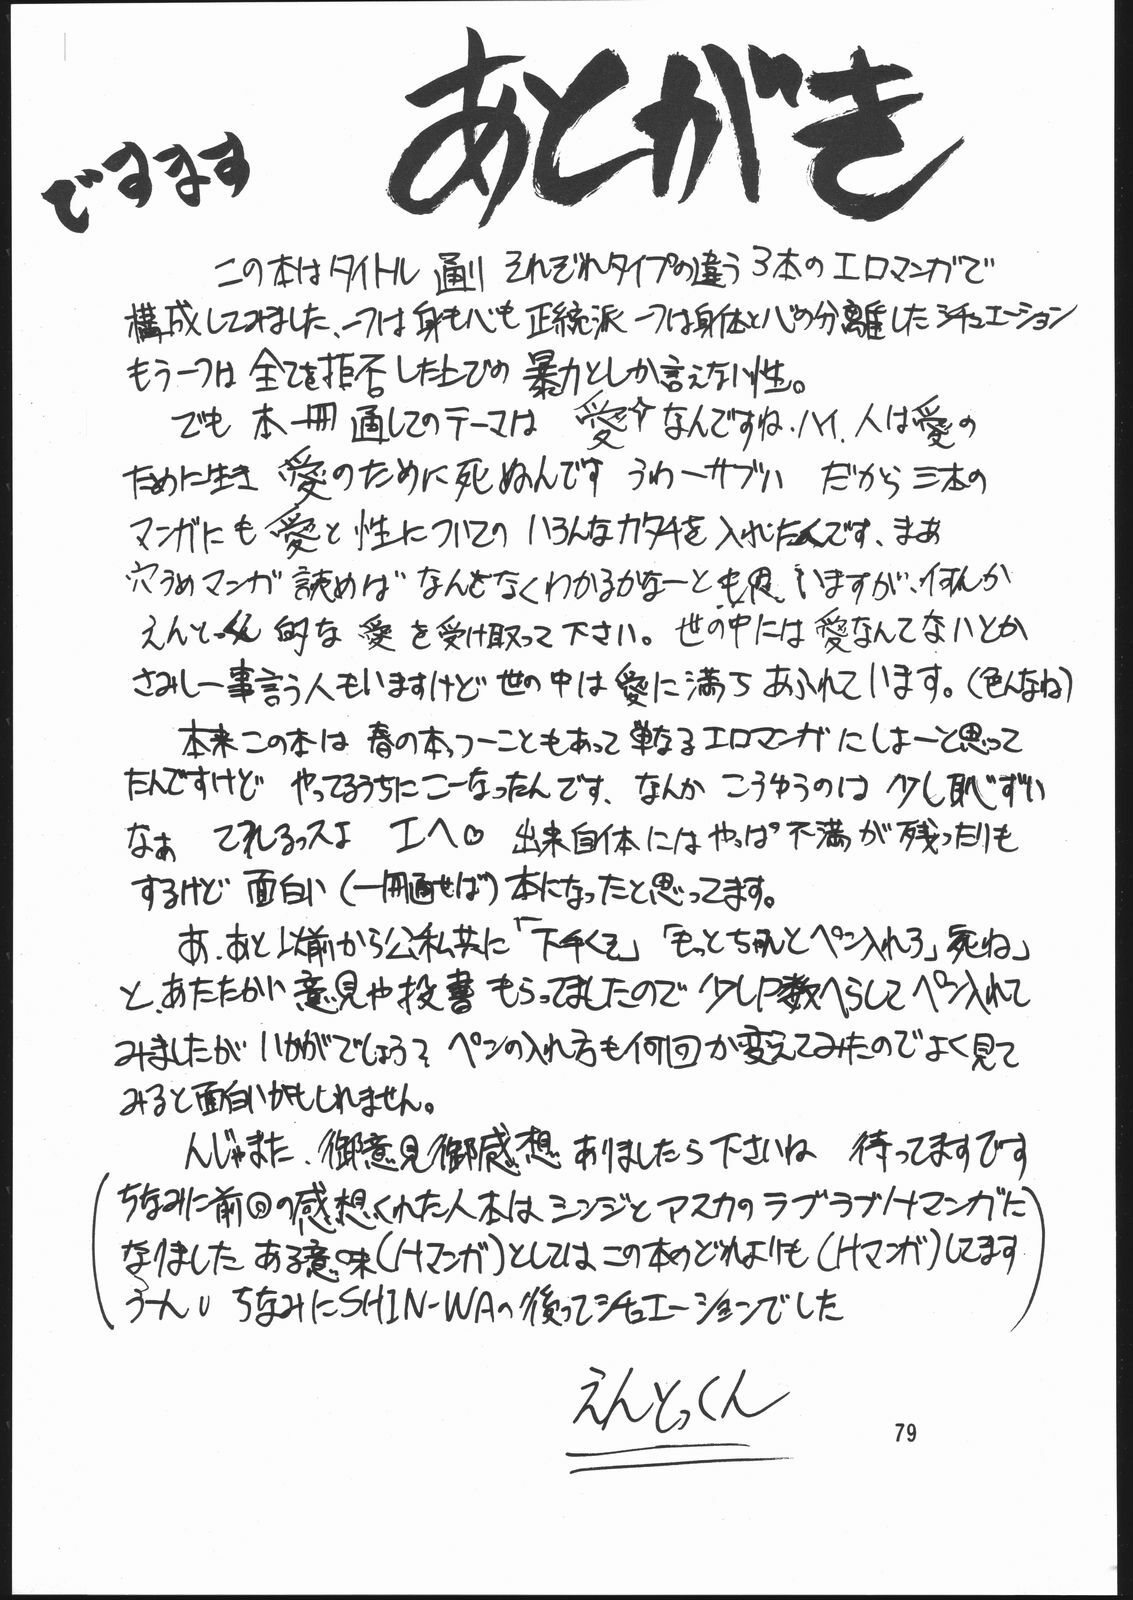 あとがき
ですます
この本はタイトル通り それぞれタイプの違う3本のエロマンガで
構成してみました、一つは身も心も正統派 一つは身体と心の分離したシチュエーション
もう一つは全てを拒否した上での暴力としか言えない性。
でも本一冊通してのテーマは 愛☆なんですね、ハイ、人は愛の
ために生き 愛のために死ぬんです うわーサブい だから三本の
マンガにも愛と性についてのいろんなカタチを入れたんです、まあ
穴うめマンガ読めばなんとなくわかるかなーとも思いますが、何んか
えんとっくん的な愛を受け取って下さい。世の中には愛なんてないとか
さみしー事言う人もいますけど世の中は愛に満ちあふれています。(色んなね)
本来この本は春の本っつーこともあって単なるエロマンガにしよーと思って
たんですけど やってるうちにこーなったんです、なんかこうゆうのは少し恥ずい
なぁ てれるっスよ エヘ♡ 出来自体にはやっぱ不満が残ったりも
するけど面白い(一冊通せば)本になったと思ってます。
あ、あと以前から公私共に「下手くそ」「もっとちゃんとペン入れろ」死ね」
と、あたたかい意見や投書もらってましたので少しP数へらしてペン入れて
みましたがいかがでしょうか ペンの入れ方も何回か変えてみたのでよく見て
みると面白いかもしれません。
んじゃまた、御意見御感想ありましたら下さいね 待ってますです
(ちなみに前回の感想くれた人本はシンジとアスカのラブラブHマンガに
なりました ある意味(Hマンガ)としてはこの本のどれよりも(Hマンガ)してます
うーん ちなみにSHIN-WAの後ってシチュエーションでした)
えんとっくん
79